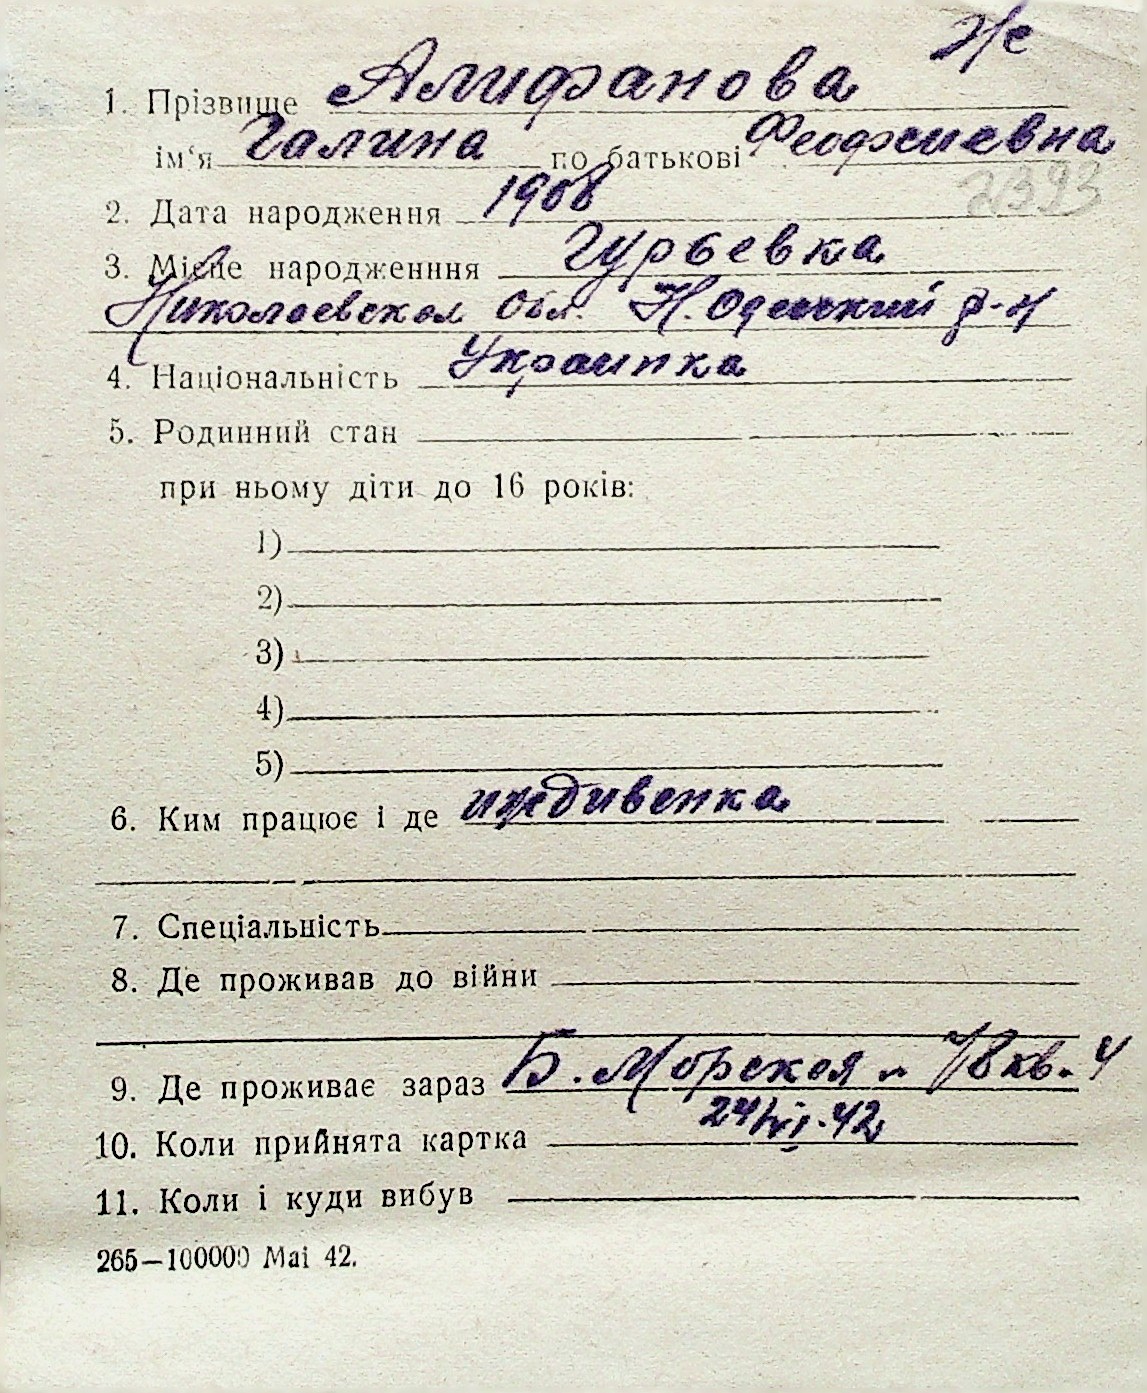 Же
1. Прізвище Алифанова
ім'я Галина по батькові Феофиевна
2393
2. Дата народження 1908
3. Місце народженння Гурьевка
Николаевская обл. Н. Одесский р-н
4. Національність Украинка
5. Родинний стан
при ньому діти до 16 років:
1)
2)
3)
4)
5)
6. Ким працює і де иждивенка
7. Спеціальність
8. Де проживав до війни
9. Де проживає зараз Б. Морская 78 кв. 4
10. Коли прийнята картка 42
11. Коли і куди вибув
265—100000 Mai 42.